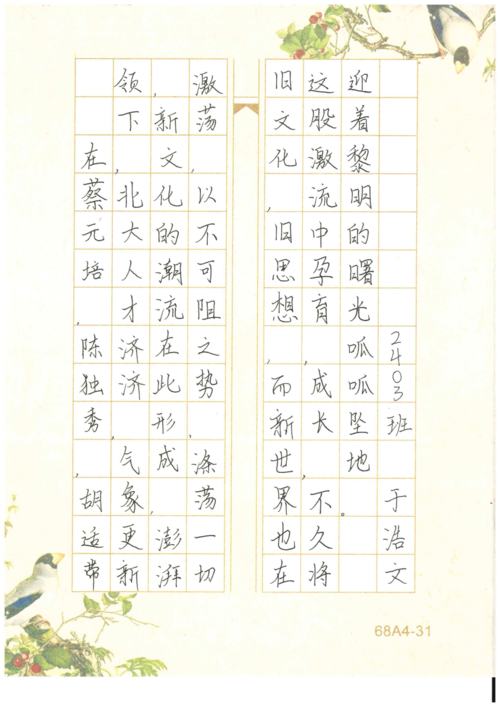 在蔡元培，陈独秀，胡适带
领下，北大人才济济，气象更新
，新文化的潮流在此形成，澎湃
激荡，以不可阻之势，涤荡一切
旧文化，旧思想，而新世界也在
这股激流中孕育，成长，不久将
迎着黎明的曙光呱呱坠地。
2403班 于浩文
68A4-31